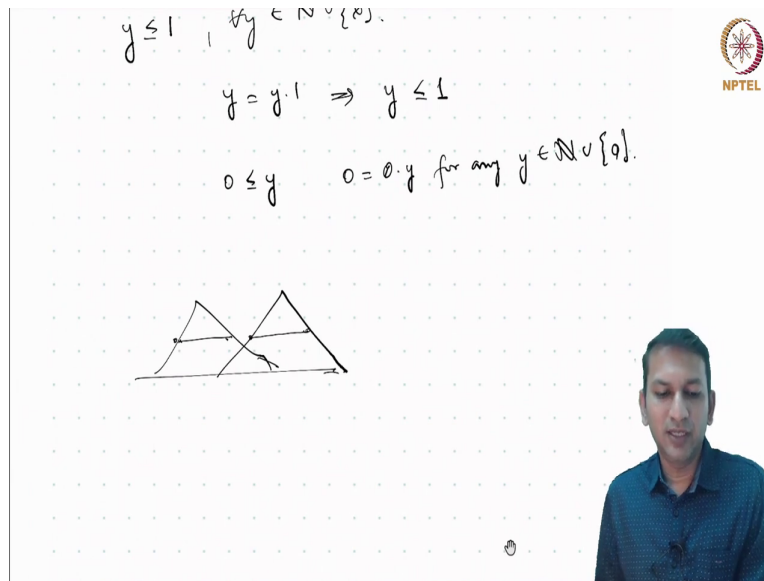 y ≤ 1 , ∀y ∈ ℕ ∪ {0}.
y = y.1 ⇒ y ≤ 1
0 ≤ y 0 = 0.y for any y ∈ ℕ ∪ {0}.
NPTEL